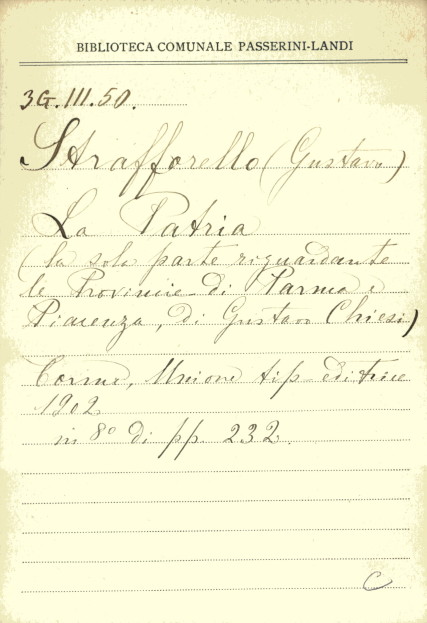 BIBLIOTECA COMUNALE PASSERINI-LANDI
3G.III.50.
Strafforello (Gustavo)
La Patria
(la sola parte riguardante
le Provincie di Parma e
Piacenza, di Gustavo Chiesi)
Torino, Unione tip. editrice
1902
in 8º di pp. 232.
C